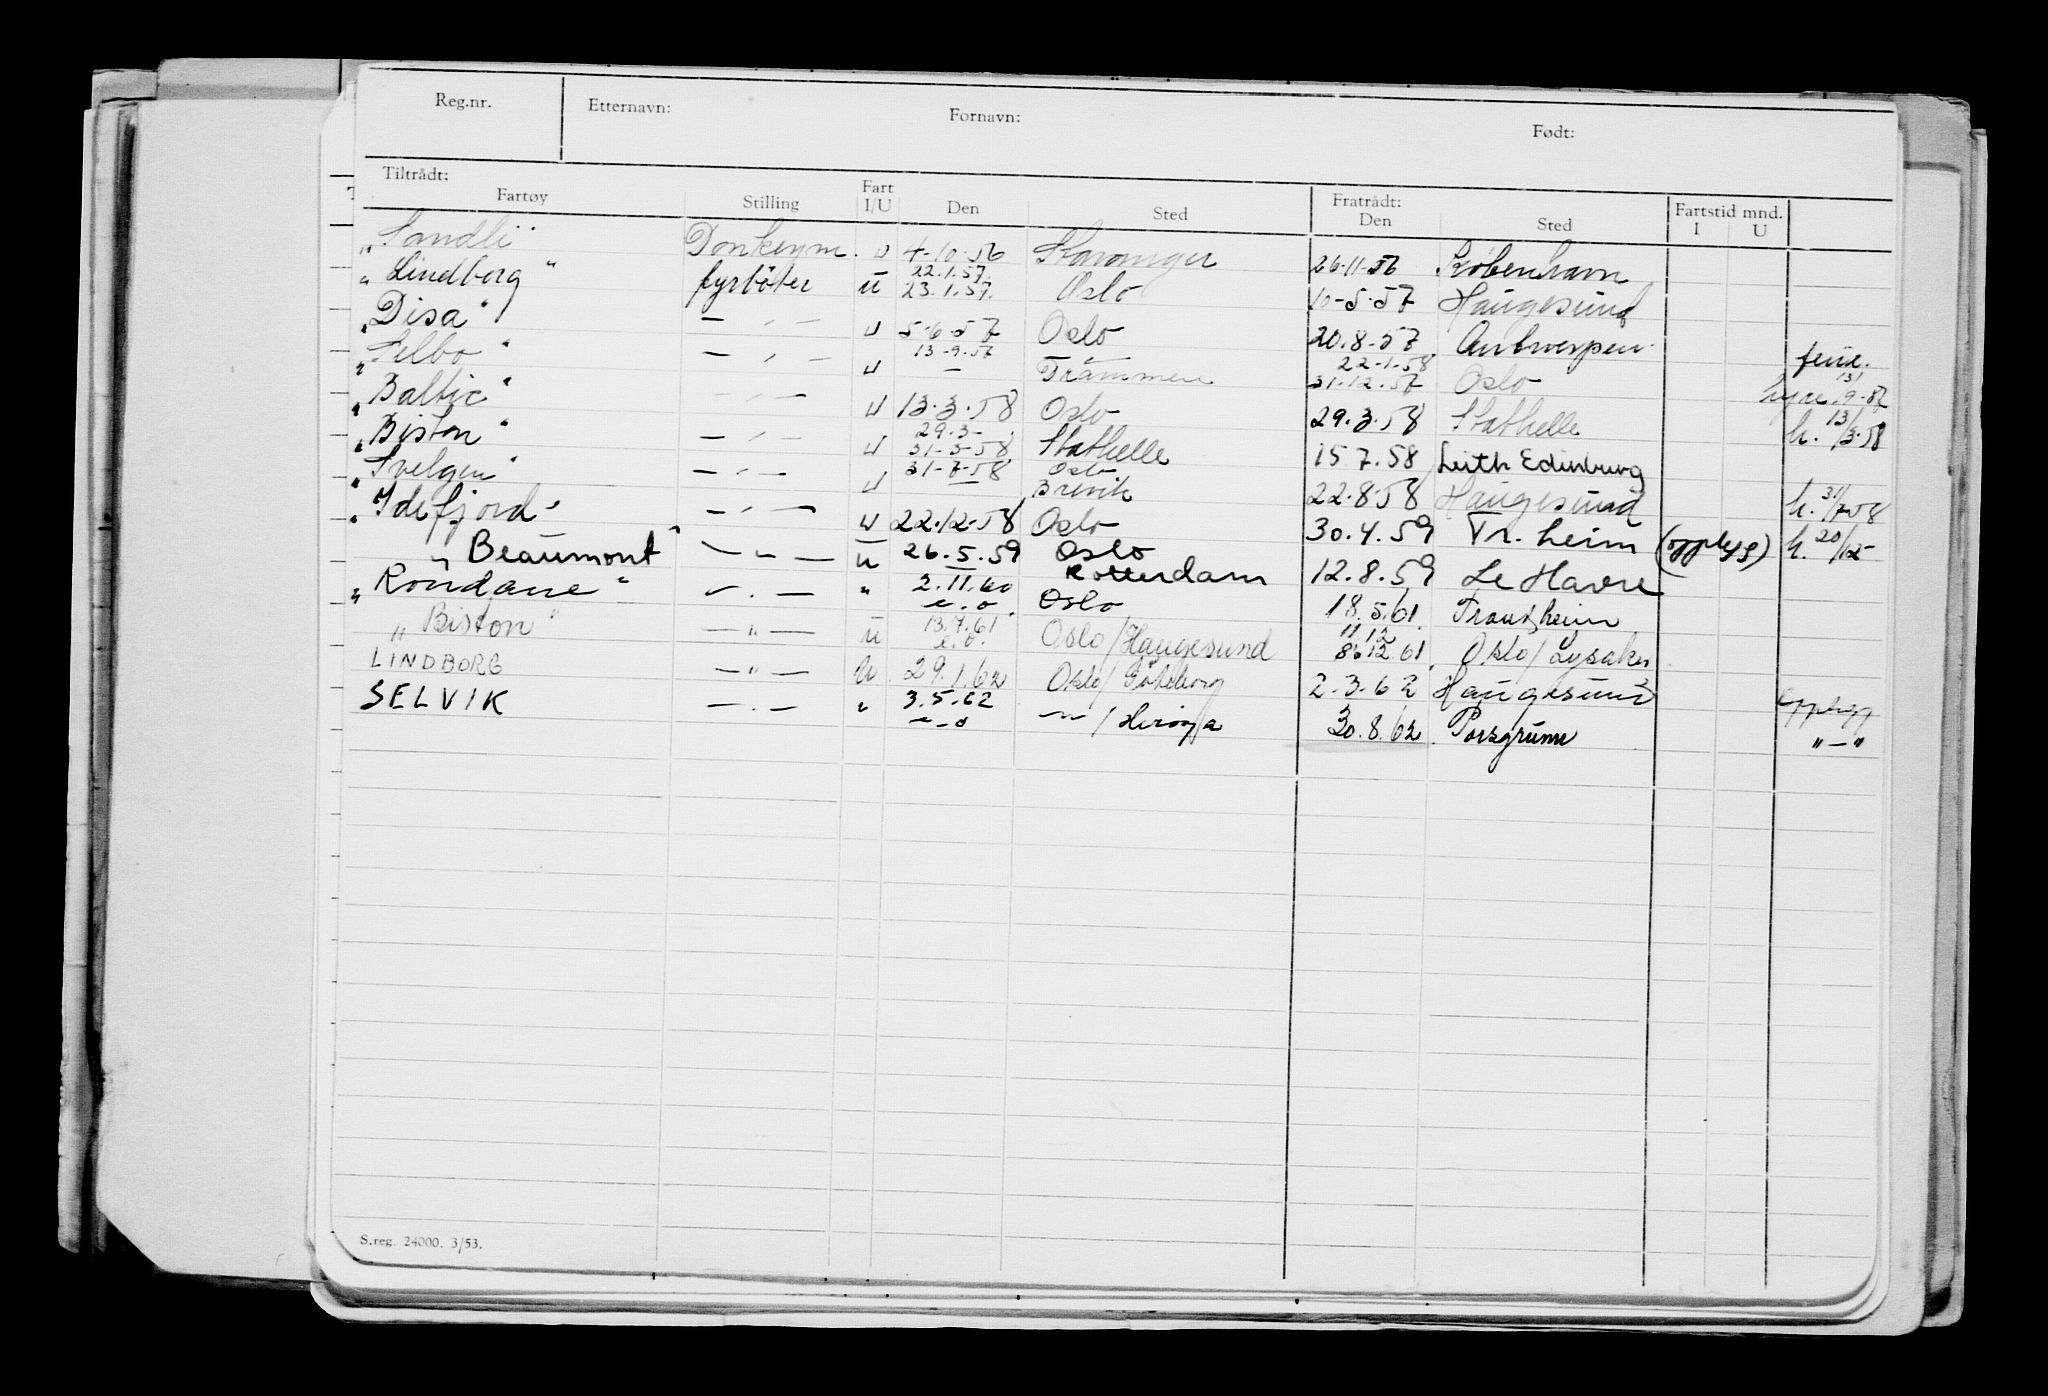 Reg.nr. Etternavn: Fornavn: Født:
Tiltrådt: Fratrådt: Fartstid mnd.
Fartøy Stilling Fart I/U Den Sted Den Sted I U
"Sandli" Donkeym. U 4-10-56 Stavanger 26-11-56 København
"Lindborg" fyrbøter U 22.1.57. 23.1.57. Oslo 10-5-57 Haugesund
"Disa" — " — U 5-6-57 Oslo 20.8.57 Antwerpen ferie.
"Selbo" — " — U 13-9-57 — 22-1-58 31-12-57 Oslo hyre 13/9-57
"Baltic" — " — U 13.3.58 Oslo 29.3.58 Stathelle h. 13/3.58
"Biston" — " — U 29.3- 31-3-58 Stathelle 15.7.58 Leith Edinburg
"Svelgen" — " — U 31-7-58 — Oslo Brevik 22.8.58 Haugesund h. 31/7-58
"Idefjord" — " — U 22.12.58 Oslo 30.4.59 Tr.heim (opplegg) h. 20/12-
"Beaumont" — " — U 26.5.59 — Oslo Rotterdam 12.8.59 Le Havre
"Rondane" — " — " 2.11.60 e.o. Oslo 18.5.61. Trondheim
"Biston" — " — U 13.7.61 e.o. Oslo/Haugesund 11.12 12.61. Oslo/Lysaker
LINDBORG — " — U 29.1.62 Oslo/Göteborg 2.3.62 Haugesund Opplegg
SELVIK — " — " 3.5.62 e-o — " — / Herøya 30.8.62. Porsgrunn " — "
S.reg. 24000. 3/53.